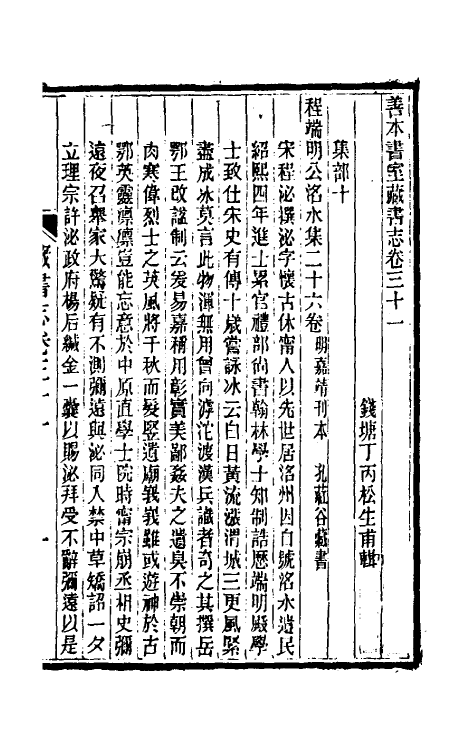 善本書室藏書志卷三十一
錢塘丁丙松生甫輯
集部十
程端明公洺水集二十六卷 明嘉靖刊本 孔葒谷藏書
宋程泌撰泌字懷古休甯人以先世居洺州因自號洺水遺民
紹熙四年進士累官禮部尚書翰林學士知制誥歷端明殿學
士致仕宋史有傳十歲嘗詠冰云白日黃流漲渭城三更風緊
盡成冰莫言此物渾無用曾向滹沱渡漢兵識者奇之其撰岳
鄂王改諡制云爰易嘉稱用彰實美鄙姦夫之遺臭不崇朝而
肉寒偉烈士之英風將千秋而髮豎遺廟巍巍雖或遊神於古
鄂英靈凛凛豈能忘意於中原直學士院時甯宗崩丞相史彌
遠夜召舉家大驚疑有不測彌遠與泌同入禁中草矯詔一夕
立理宗許泌政府楊后緘金一囊以賜泌拜受不辭彌遠以是
藏書志卷三十一 一